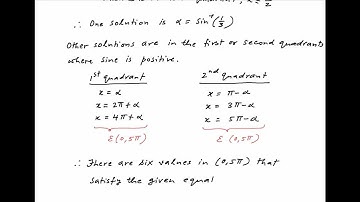 ∴ One solution is α = sin⁻¹(1/3)
Other solutions are in the first or second quadrants
where sine is positive.
1st quadrant
x = α
x = 2π+α
x = 4π+α
∈ (0,5π)
2nd quadrant
x = π-α
x = 3π-α
x = 5π-α
∈ (0,5π)
∴ There are six values in (0,5π) that
satisfy the given equal